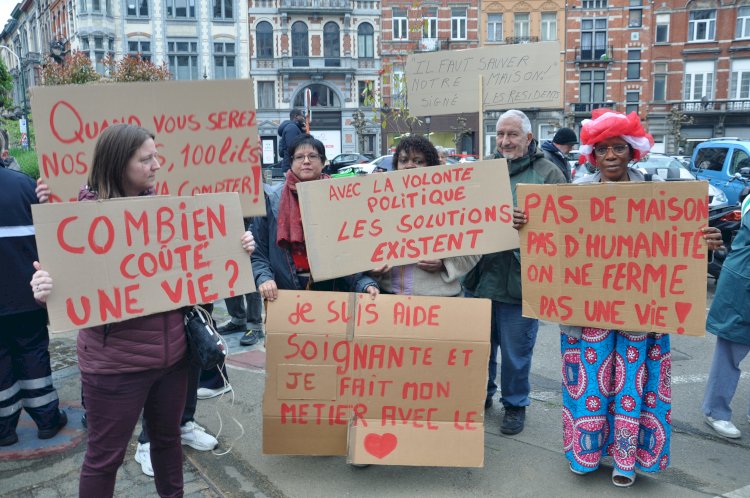 QUAND VOUS SEREZ
NOS 100 lits
VA COMPTER!
"IL FAUT SAUVER
NOTRE MAISON!"
SIGNÉ LES RESIDENTS
COMBIEN
COÛTÉ
UNE VIE?
AVEC LA VOLONTE
POLITIQUE
LES SOLUTIONS
EXISTENT
PAS DE MAISON
PAS D'HUMANITÉ
ON NE FERME
PAS UNE VIE!
Je SUIS AIDE
SOIGNANTE ET
JE FAIT MON
METIER AVEC LE